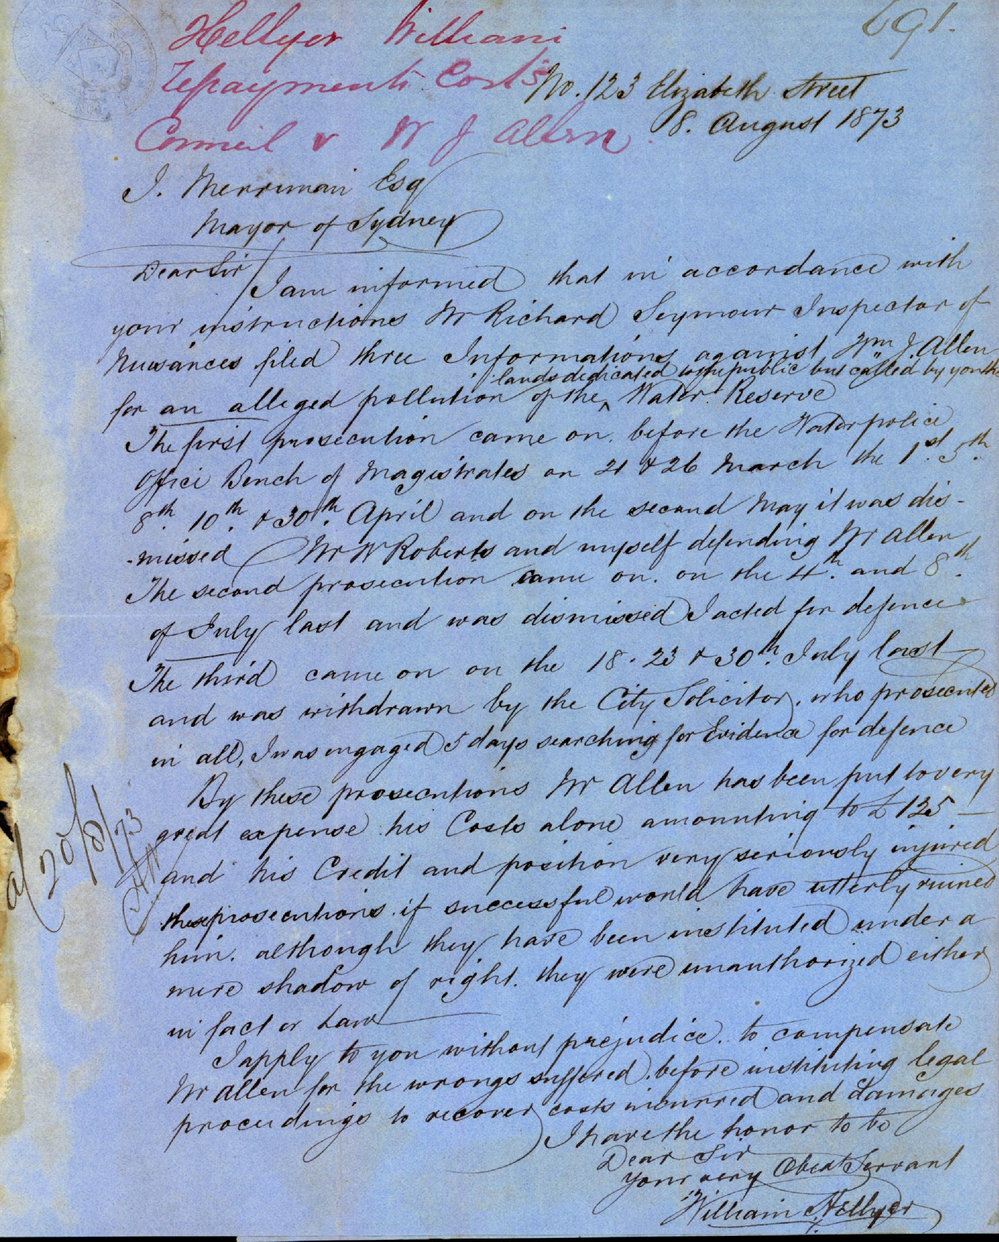 691.
Hellyer William
repayment Costs
Council v W J Allen
No. 123 Elizabeth Street
8. August 1873
J. Merriman Esq
Mayor of Sydney
Dear Sir
I am informed that in accordance with
your instructions Mr Richard Seymour Inspector of
Nuisances filed three Informations against Wm J. Allen
lands dedicated to the public but called by you the
for an alleged pollution of the ^ Water Reserve
The first prosecution came on. before the Water police
Office Bench of Magistrates on 21 & 26 March the 1st. 5th.
8th 10th. & 30th. April and on the second May it was dis-
-missed Mr W Roberts and myself defending Mr Allen
The second prosecution came on. on the 4th. and 8th.
of July last and was dismissed I acted for defence
The third came on on the 18. 23 & 30th. July last
and was withdrawn by the City Solicitor, who prosecuted
in all, I was engaged 5 days searching for Evidence for defence
By these prosecutions Mr Allen has been put to very
great expense his Costs alone amounting to £125 —
and his Credit and position very seriously injured
these prosecutions. if successful would have utterly ruined
him. although they have been instituted under a
mere shadow of right. they were unauthorized either
in fact or Law
I apply to you without prejudice. to compensate
Mr Allen for the wrongs suffered. before instituting legal
proceedings to recover costs incurred and damages
I have the honor to be
Dear Sir
Your very Obedt Servant
William Hellyer
20/8/73